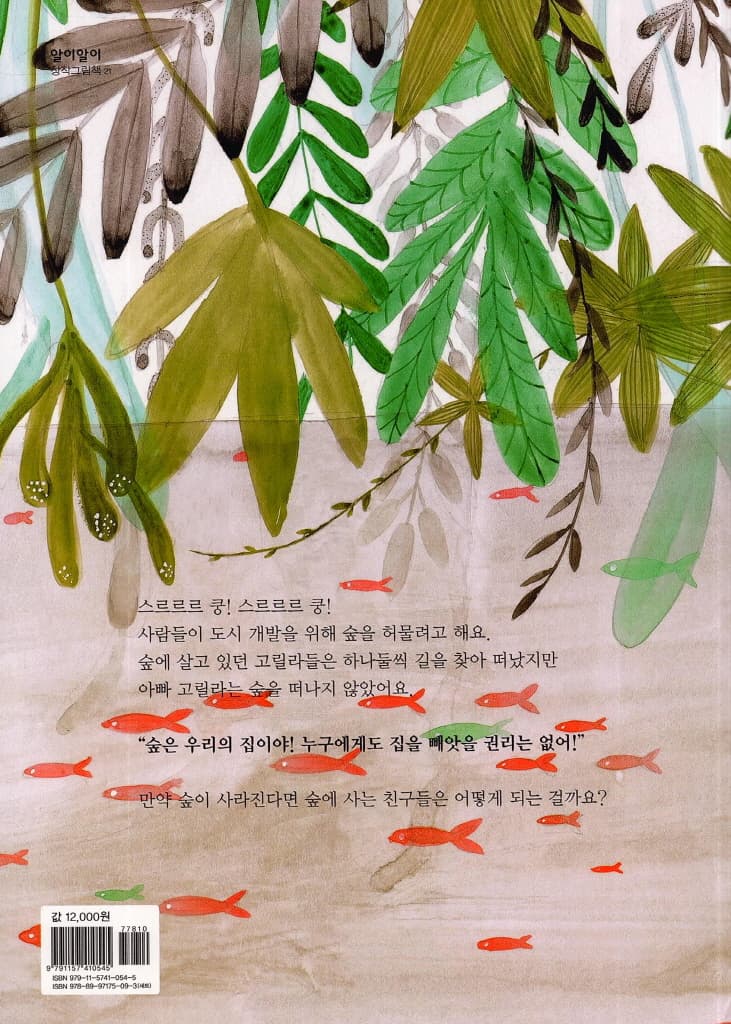 알이알이
창작그림책 21
스르르르 쿵! 스르르르 쿵!
사람들이 도시 개발을 위해 숲을 허물려고 해요.
숲에 살고 있던 고릴라들은 하나둘씩 길을 찾아 떠났지만
아빠 고릴라는 숲을 떠나지 않았어요.
“숲은 우리의 집이야! 누구에게도 집을 빼앗을 권리는 없어!”
만약 숲이 사라진다면 숲에 사는 친구들은 어떻게 되는 걸까요?
값 12,000원
77810
9 791157 410545
ISBN 979-11-5741-054-5
ISBN 978-89-97175-09-3(세트)